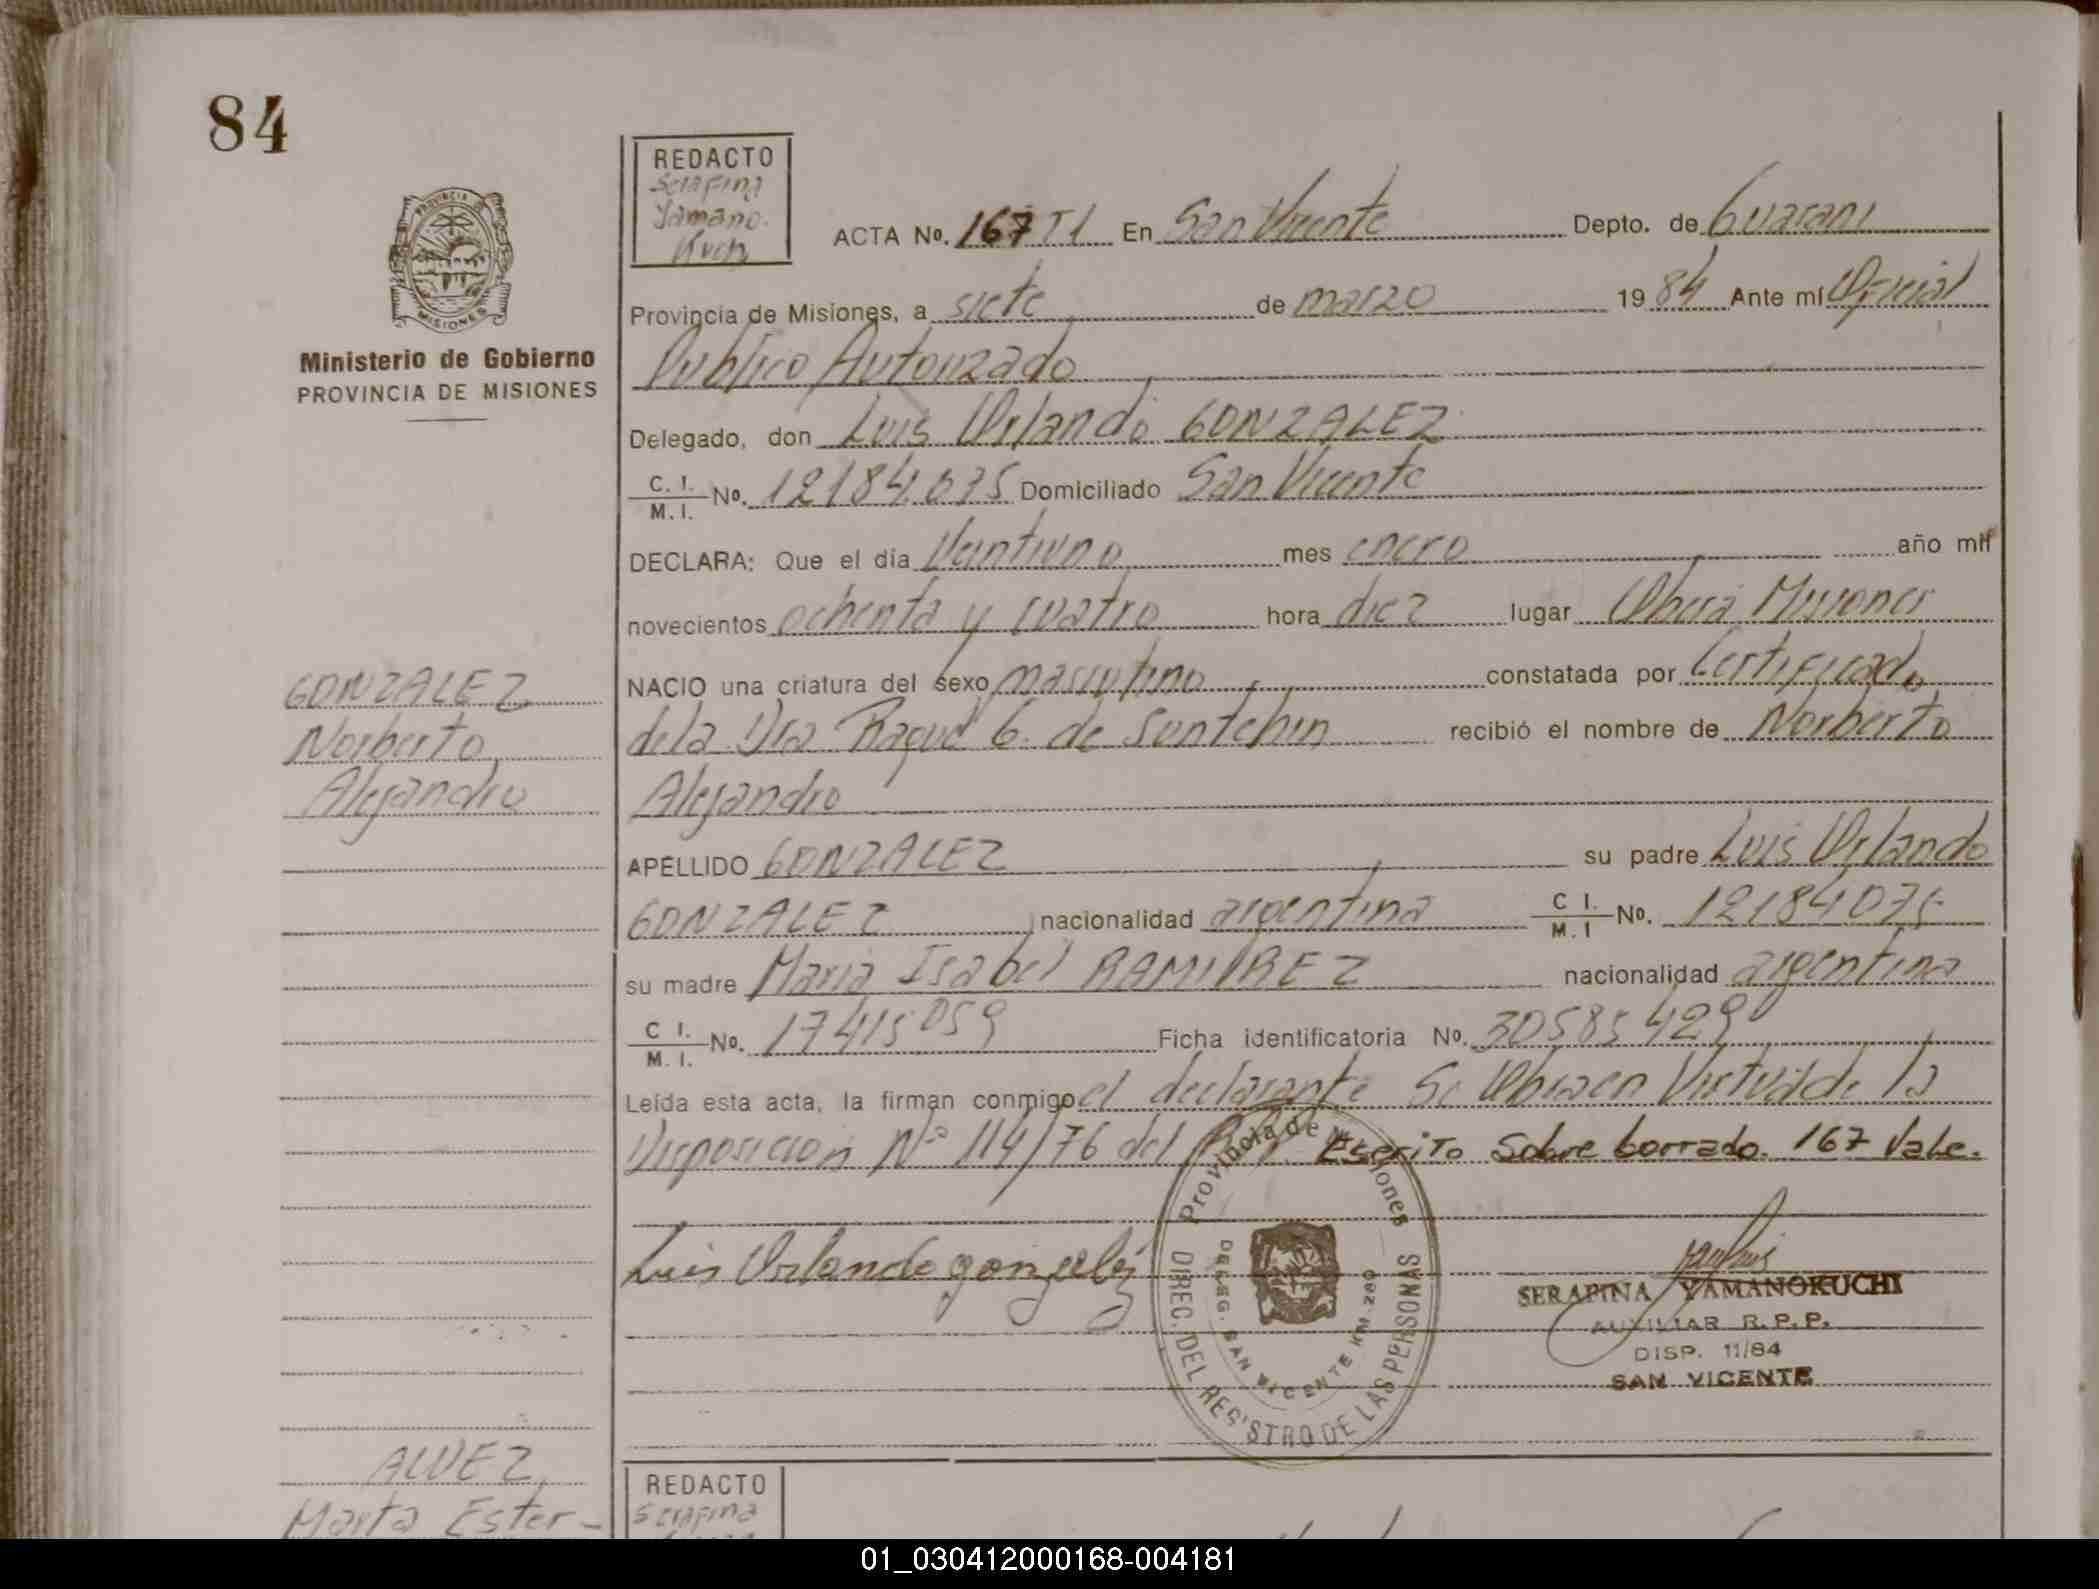 84
REDACTO
Serafina
Yamano.
Kuch
ACTA No. 167 T1 En San Vicente Depto. de Guarani
PROVINCIA DE
MISIONES
Provincia de Misiones, a siete de marzo 1984 Ante mí Oficial
Ministerio de Gobierno
PROVINCIA DE MISIONES
Publico Autorizado
Delegado, don Luis Orlando GONZALEZ
C. I.
M. I. No. 12184.075 Domiciliado San Vicente
DECLARA: Que el día Veintiuno mes enero año mil
novecientos ochenta y cuatro hora diez lugar Oberá Misiones
GONZALEZ
Norberto
Alejandro
NACIO una criatura del sexo masculino constatada por Certificado
de la Dra Raquel G. de Sontchin recibió el nombre de Norberto
Alejandro
APELLIDO GONZALEZ su padre Luis Orlando
GONZALEZ nacionalidad argentina C I.
M. I No. 12184075
su madre Maria Isabel RAMIREZ nacionalidad argentina
C I.
M. I. No. 17415059 Ficha identificatoria No. 30585429
Leída esta acta, la firman conmigo el declarante Se Obra en Virtud de la
Disposicion Nº 114/76 del Escrito Sobre borrado. 167 Vale.
Luis Orlando gonzalez
Provincia de Misiones
DIREC. DEL REGISTRO DE LAS PERSONAS
DELEG. SAN VICENTE KM. 280
SERAFINA YAMANOKUCHI
AUXILIAR R. P. P.
DISP. 11/84
SAN VICENTE
ALVEZ
Marta Ester-
REDACTO
Serafina
01_030412000168-004181